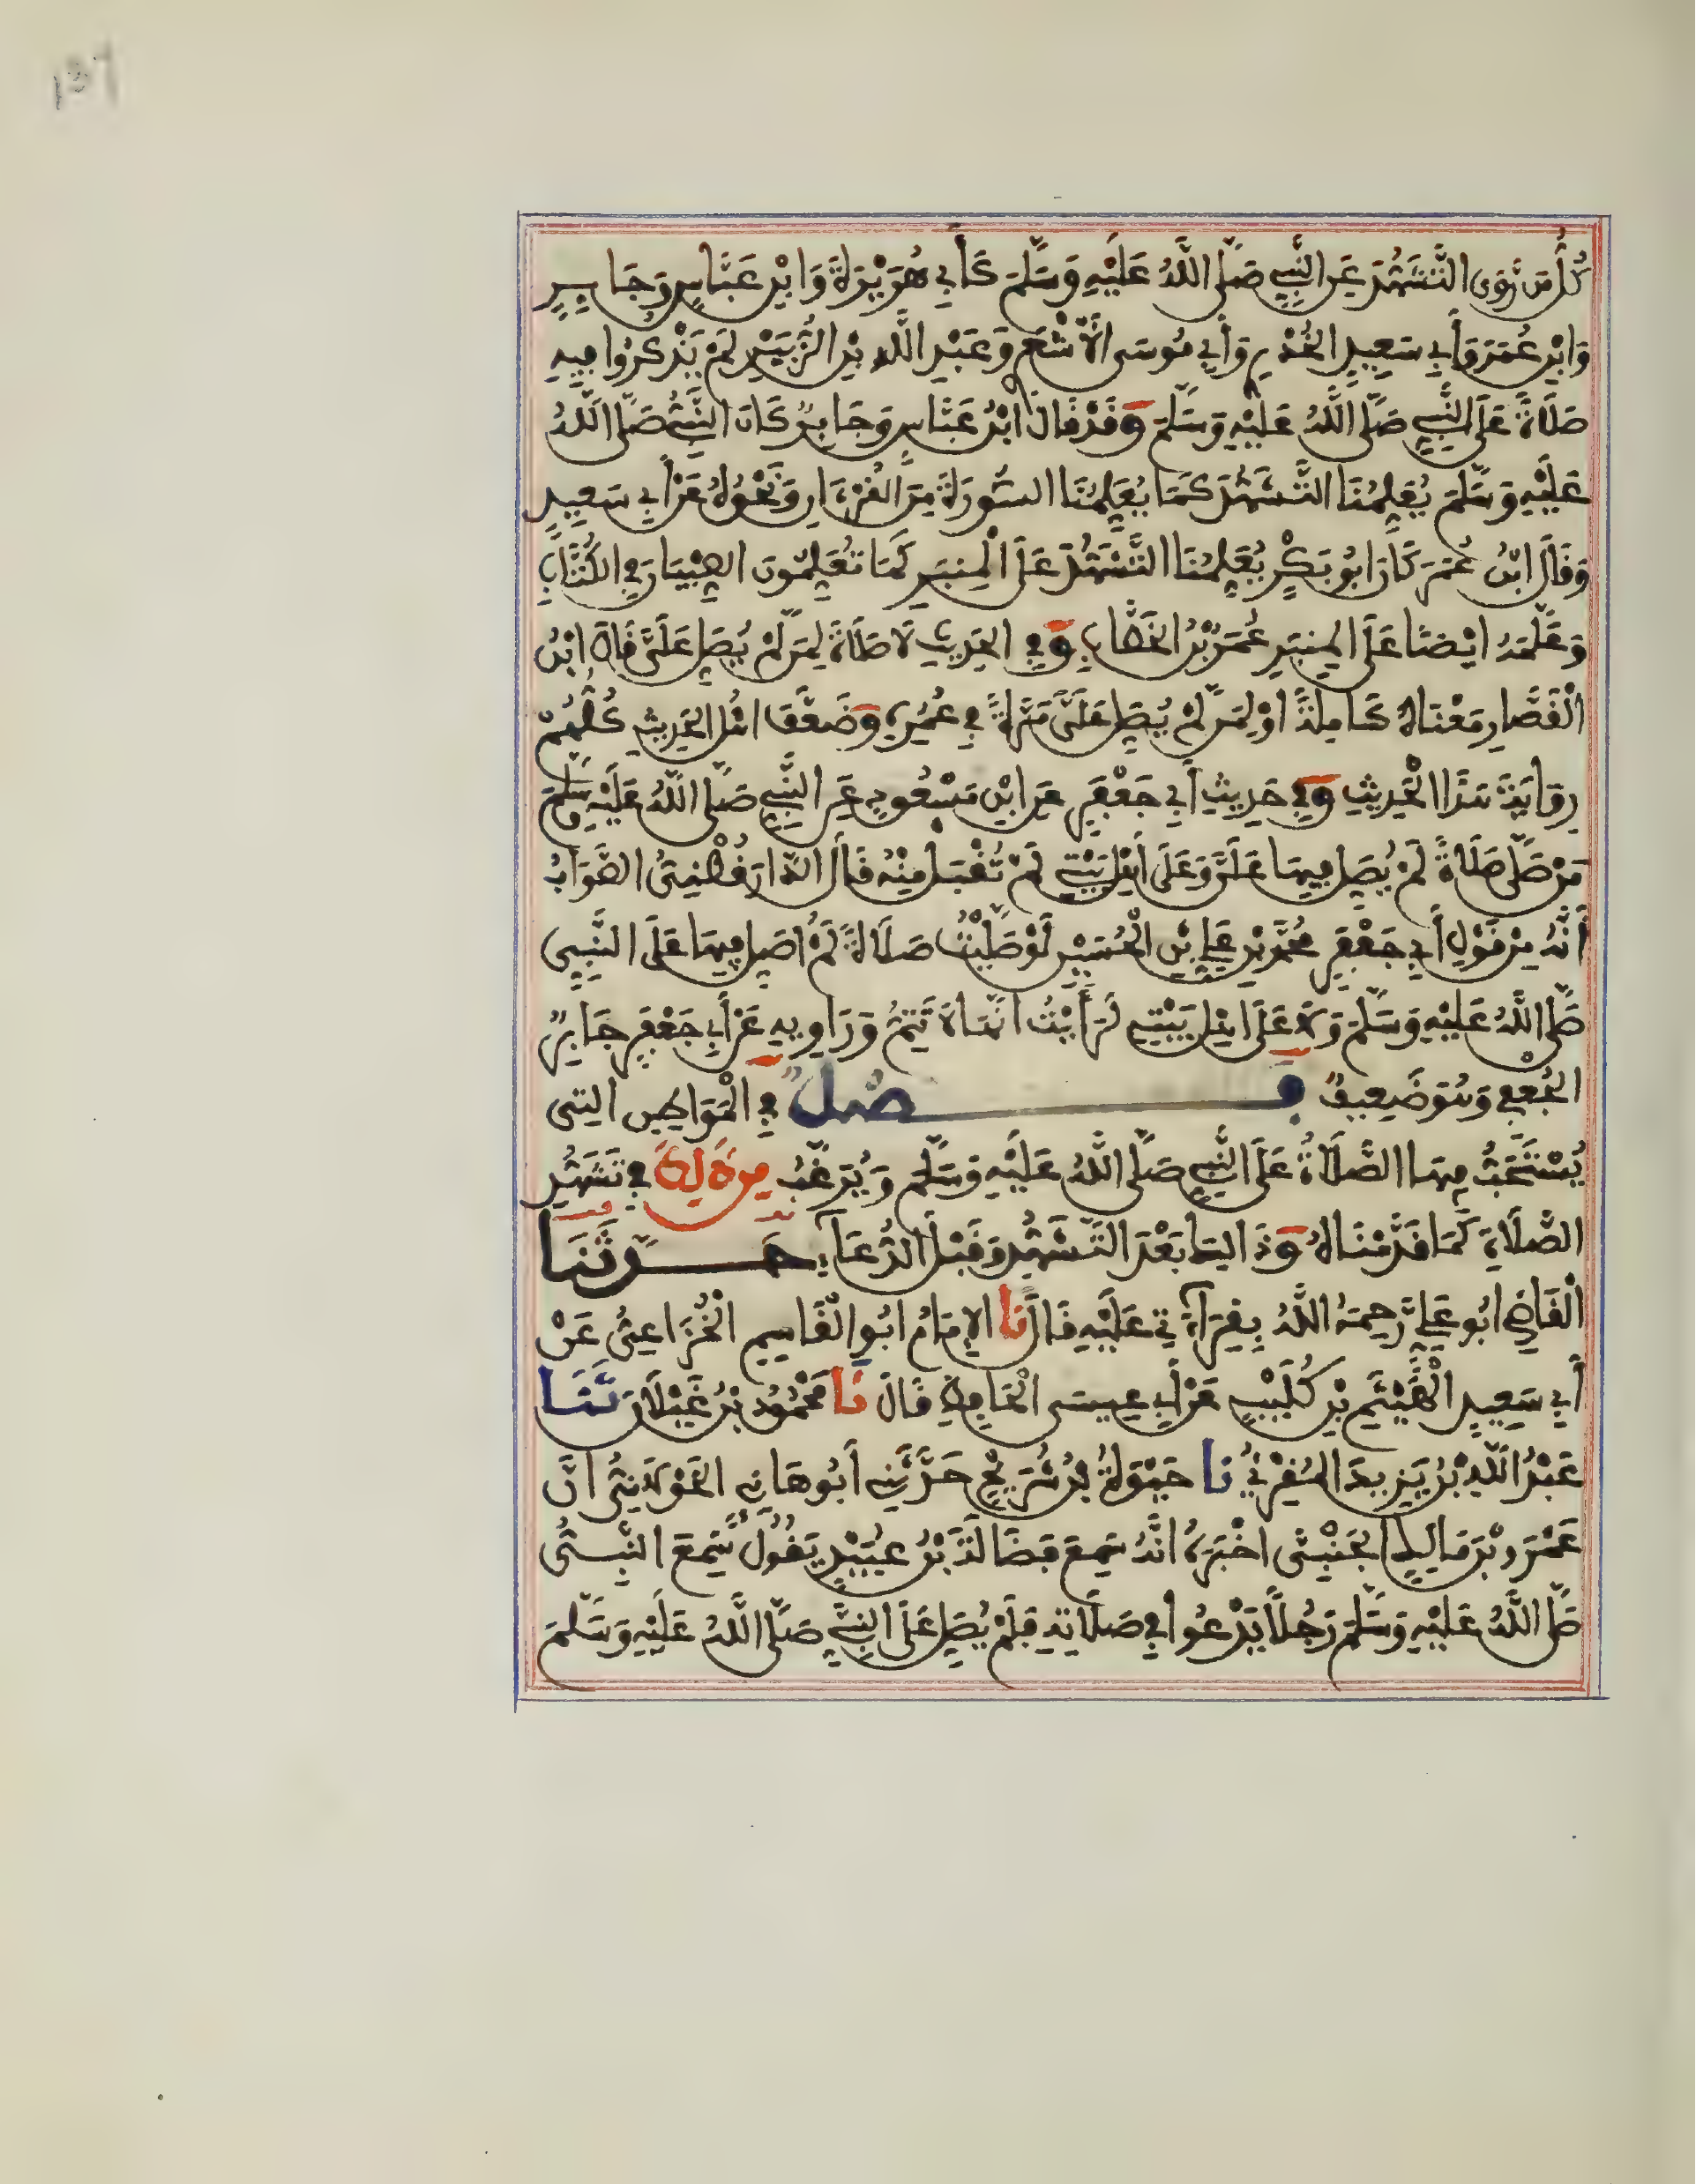 كُلُّ مَن رَّوَى التَّشَهُّدَ عَنِ النَّبِيِّ صَلَّى اللَّهُ عَلَيْهِ وَسَلَّمَ كَأَبِي هُرَيْرَةَ وَابْنِ عَبَّاسٍ وَجَابِرٍ
وَابْنِ عُمَرَ وَأَبِي سَعِيدٍ الْخُدْرِي وَأَبِي مُوسَى الْأَشْعَرِي وَعَبْدِ اللَّهِ بْنِ الزُّبَيْرِ لَمْ يَذْكُرُوا فِيهِ
صَلَاةً عَلَى النَّبِيِّ صَلَّى اللَّهُ عَلَيْهِ وَسَلَّمَ وَقَدْ قَالَ ابْنُ عَبَّاسٍ وَجَابِرٌ كَانَ النَّبِيُّ صَلَّى اللَّهُ
عَلَيْهِ وَسَلَّمَ يُعَلِّمُنَا التَّشَهُّدَ كَمَا يُعَلِّمُنَا السُّورَةَ مِنَ الْقُرْءَانِ وَنَحْوُهُ عَنْ أَبِي سَعِيدٍ
وَقَالَ ابْنُ عُمَرَ كَانَ ابُو بَكْرٍ يُعَلِّمُنَا التَّشَهُّدَ عَلَى الْمِنبَرِ كَمَا تُعَلِّمُونَ الصِّبْيَانَ فِي الْكُتَّابِ
وَعَلَّمَهُ ايْضًا عَلَى الْمِنبَرِ عُمَرُ بْنُ الْخَطَّابِ وَفِي الْحَدِيثِ لَا صَلَاةَ لِمَن لَّمْ يُصَلِّ عَلَيَّ قَالَ ابْنُ
الْقَصَّارِ مَعْنَاهُ كَامِلَةً اوْ لِمَن لَّمْ يُصَلِّ عَلَيَّ مَرَّةً فِي عُمُرِهِ وَضَعَّفَ اهْلُ الْحَدِيثِ كُلُّهُمْ
رِوَايَةَ هَذَا الْحَدِيثِ وَفِي حَدِيثِ أَبِي جَعْفَرٍ عَنِ ابْنِ مَسْعُودٍ عَنِ النَّبِيِّ صَلَّى اللَّهُ عَلَيْهِ وَسَلَّمَ
مَنْ صَلَّى صَلَاةً لَمْ يُصَلِّ فِيهَا عَلَيَّ وَعَلَى أَهْلِ بَيْتِي لَمْ تُقْبَلْ مِنْهُ قَالَ الدَّارَقُطْنِيُّ الصَّوَابُ
أَنَّهُ مِنْ قَوْلِ أَبِي جَعْفَرٍ مُحَمَّدِ بْنِ عَلِيِّ بْنِ الْحُسَيْنِ لَوْ صَلَّيْتُ صَلَاةً لَمْ أُصَلِّ فِيهَا عَلَى النَّبِيِّ
صَلَّى اللَّهُ عَلَيْهِ وَسَلَّمَ وَلَا عَلَى اهْلِ بَيْتِهِ لَرَأَيْتُ انَّهَا لَا تَتِمُّ وَرَاوِيهِ عَنْ أَبِي جَعْفَرٍ جَابِرٌ
الْجُعْفِي وَهُوَ ضَعِيفٌ فَصْلٌ فِي الْمَوَاطِنِ الَّتِي
يُسْتَحَبُّ فِيهَا الصَّلَاةُ عَلَى النَّبِيِّ صَلَّى اللَّهُ عَلَيْهِ وَسَلَّمَ وَيُرَغَّبُ مِن ذَلِكَ فِي تَشَهُّدِ
الصَّلَاةِ كَمَا قَدَّمْنَاهُ وَذَلِكَ بَعْدَ التَّشَهُّدِ وَقَبْلَ الدُّعَاءِ حَدَّثَنَا
الْقَاضِي ابُو عَلِيٍّ رَحِمَهُ اللَّهُ بِقِرَاءَتِي عَلَيْهِ قَالَ نَا الْإِمَامُ ابُو الْقَاسِمِ الْخُزَاعِيُّ عَنْ
أَبِي سَعِيدٍ الْهَيْثَمِ بْنِ كُلَيْبٍ عَنْ أَبِي عِيسَى الْحَافِظِ قَالَ نَا مَحْمُودُ بْنُ غَيْلَانَ ثَنَا
عَبْدُ اللَّهِ بْنُ يَزِيدَ الْمُقْرِئُ نَا حَيْوَةُ بْنُ شُرَيْحٍ حَدَّثَنِي أَبُو هَانِئٍ الْخَوْلَانِيُّ انَّ
عَمْرَو بْنَ مَالِكٍ الْجَنْبِيَّ اخْبَرَهُ انَّهُ سَمِعَ فَضَالَةَ بْنَ عُبَيْدٍ يَقُولُ سَمِعَ النَّبِيُّ
صَلَّى اللَّهُ عَلَيْهِ وَسَلَّمَ رَجُلًا يَدْعُوا فِي صَلَاتِهِ فَلَمْ يُصَلِّ عَلَى النَّبِيِّ صَلَّى اللَّهُ عَلَيْهِ وَسَلَّمَ